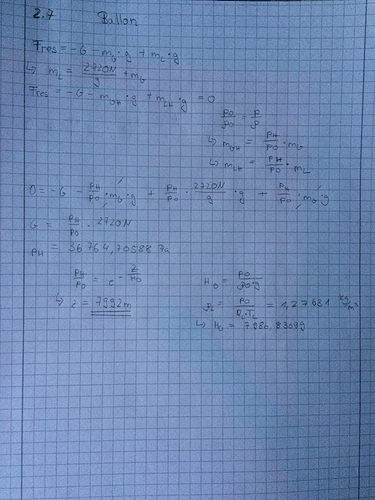 2.7 Ballon
Fres = -G - m_G · g + m_L · g
↳ m_L = 2720N/g + m_G
Fres = -G - m_GH · g + m_LH · g = 0
p0/ρ0 = p/ρ
↳ m_GH = pH/p0 · m_G
↳ m_LH = pH/p0 · m_L
0 = -G - pH/p0 · m_G · g + pH/p0 · 2720N/g · g + pH/p0 · m_G · g
G = pH/p0 · 2720N
pH = 36764,70588 Pa
pH/p0 = e^(-z/H0)
↳ z = 7992m
H0 = p0/(ρ0·g)
= 1,27631 kg/m³
↳ H0 = 7986,8309